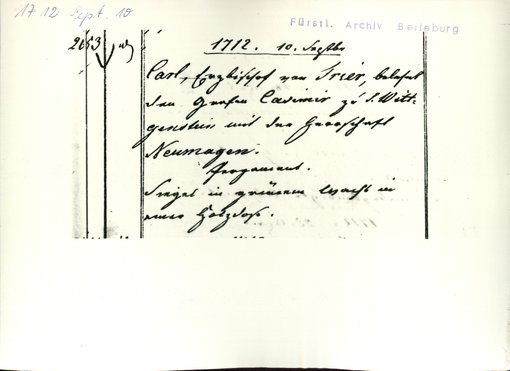 1712 Sept. 10
Fürstl. Archiv Berleburg
2653
1712. 10. Septbr
Carl, Erzbischof von Trier, belehnt
den Grafen Casimir zu S. Witt-
genstein mit der Herrschaft
Neumagen.
Pergament.
Siegel in grünem Wachs in
einer Holzdose.